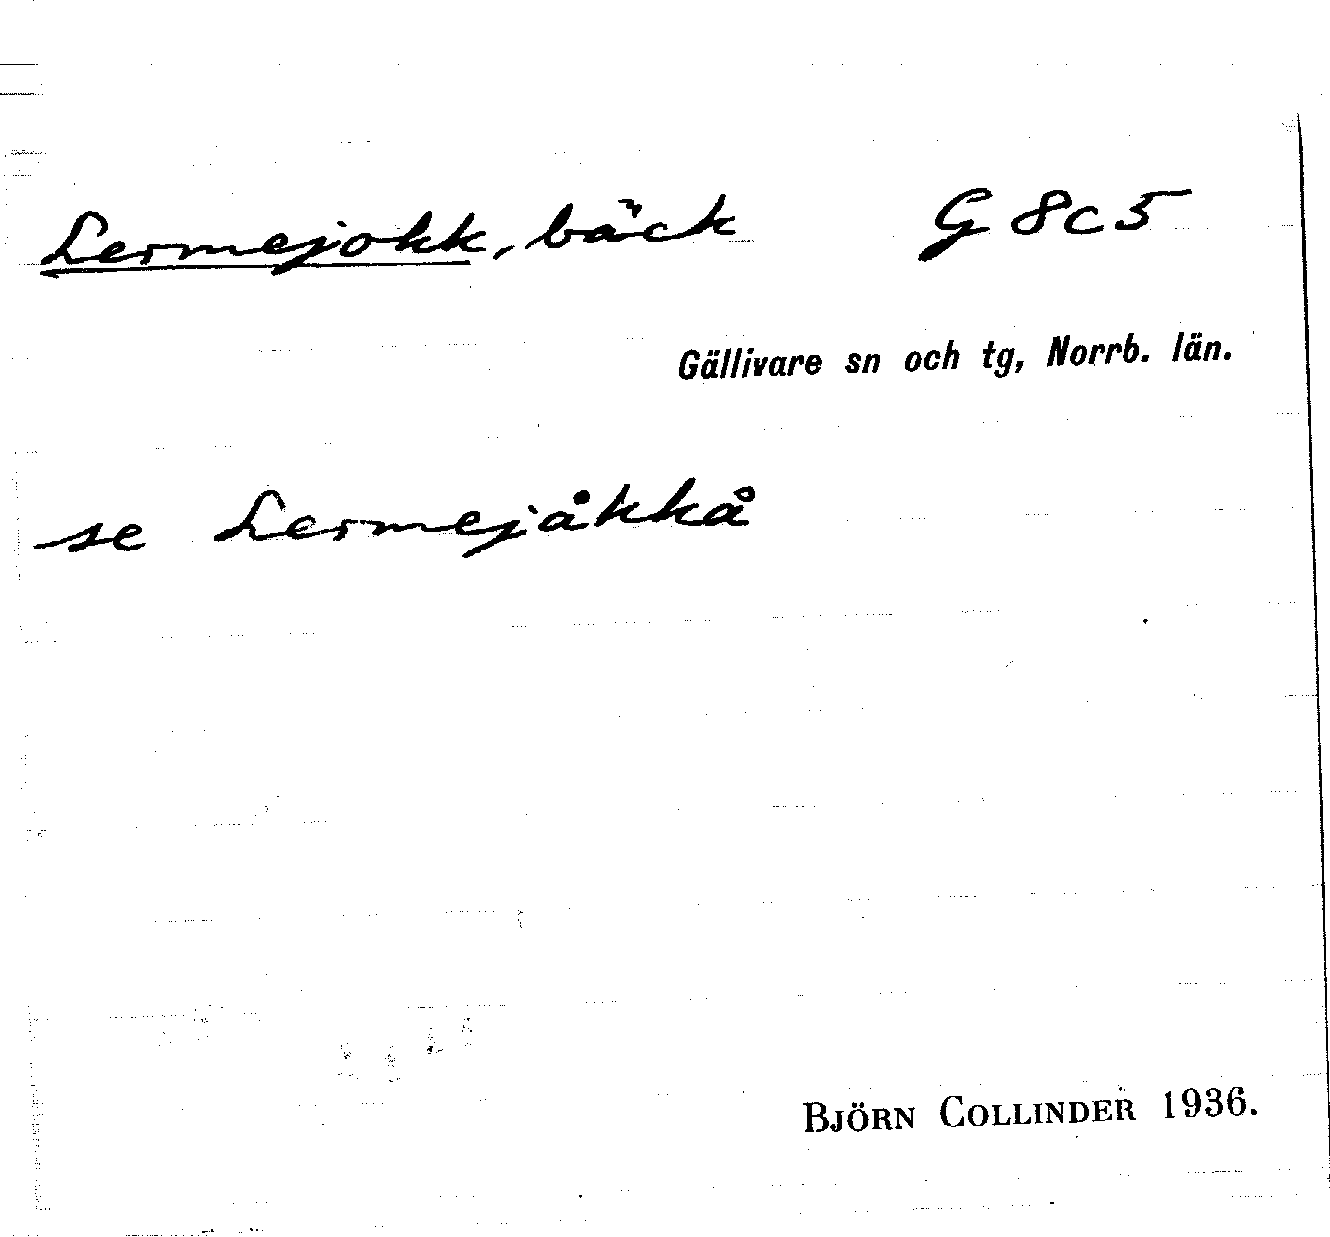 Lermejokk, bäck G 8c5
Gällivare sn och tg, Norrb. län.
se Lermejåkkå
BJÖRN COLLINDER 1936.